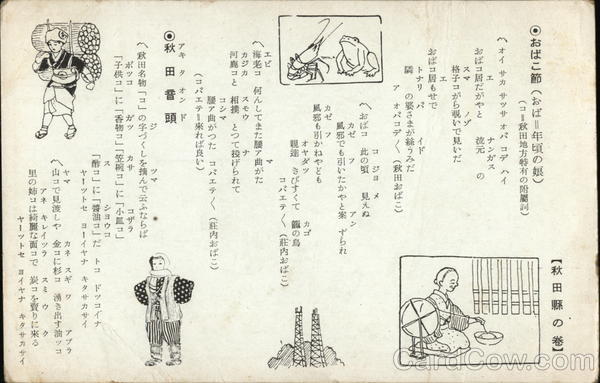 【秋田縣の巻】
◉おばこ節(おば=年頃の娘)
(コ=秋田地方特有の附屬詞)
オイ サカ サツサ オバ コデ ハイ
エ ナンガス
おばコ居だがやと 流元の
スマ ノゾ
格子コがら覗いで見いだ
エ
おばコ居もせで
トナリ バ イド
隣の婆さまが絲うみだ
ア オバコデ〱(秋田おばこ)
コ ジヨメ
〽おばコ 此の頃 見えぬ
カゼ フ アン
風邪でも引いたかやと案 ずられ
カゼ フ
風邪も引かねやども
オヤダヅ カゴ
親達 さびすくて 籠の鳥
コバエテ〱(莊内おばこ)
エビ マ
〽海老コ 何んしてまた腰コ曲がた
カジカ スモウ ナ
河鹿コと 相撲 とつて投げられて
コシ マ
腰コ曲がつた コバエテ〱(莊内おばこ)
(コバエテ=來れば良い)
アキタ オンド
◉秋田音頭
ジ ツマ
〽秋田名物「コ」の字づくしを摘んで云ふならば
ボツコ ガツ カサ コザラ
「子供コ」に「香物コ」「笠碗コ」に「小皿コ」
ス シヨウコ
「酢コ」に「醬油コ」だ トコ ドツコイナ
ヤートツセ ヨーイヤナ キタサカサイ
ヤマ カネ スギ ワ アブラ
〽山コで見渡しや 金コに杉コ 湧き出す油ッコ
アネ キレイ ツラ スミ ウ ク
里の姉コは綺麗な面コで 炭コを賣りに來る
ヤートツセ ヨイヤナ キタサカサイ
CardCow.com